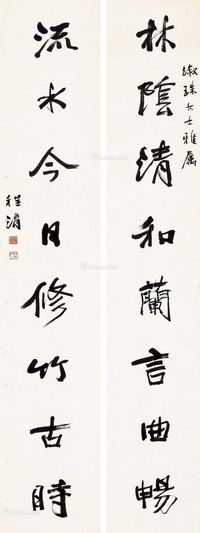 淑珠女士雅属
林陰清和蘭言曲暢
流水今日修竹古時
程潜